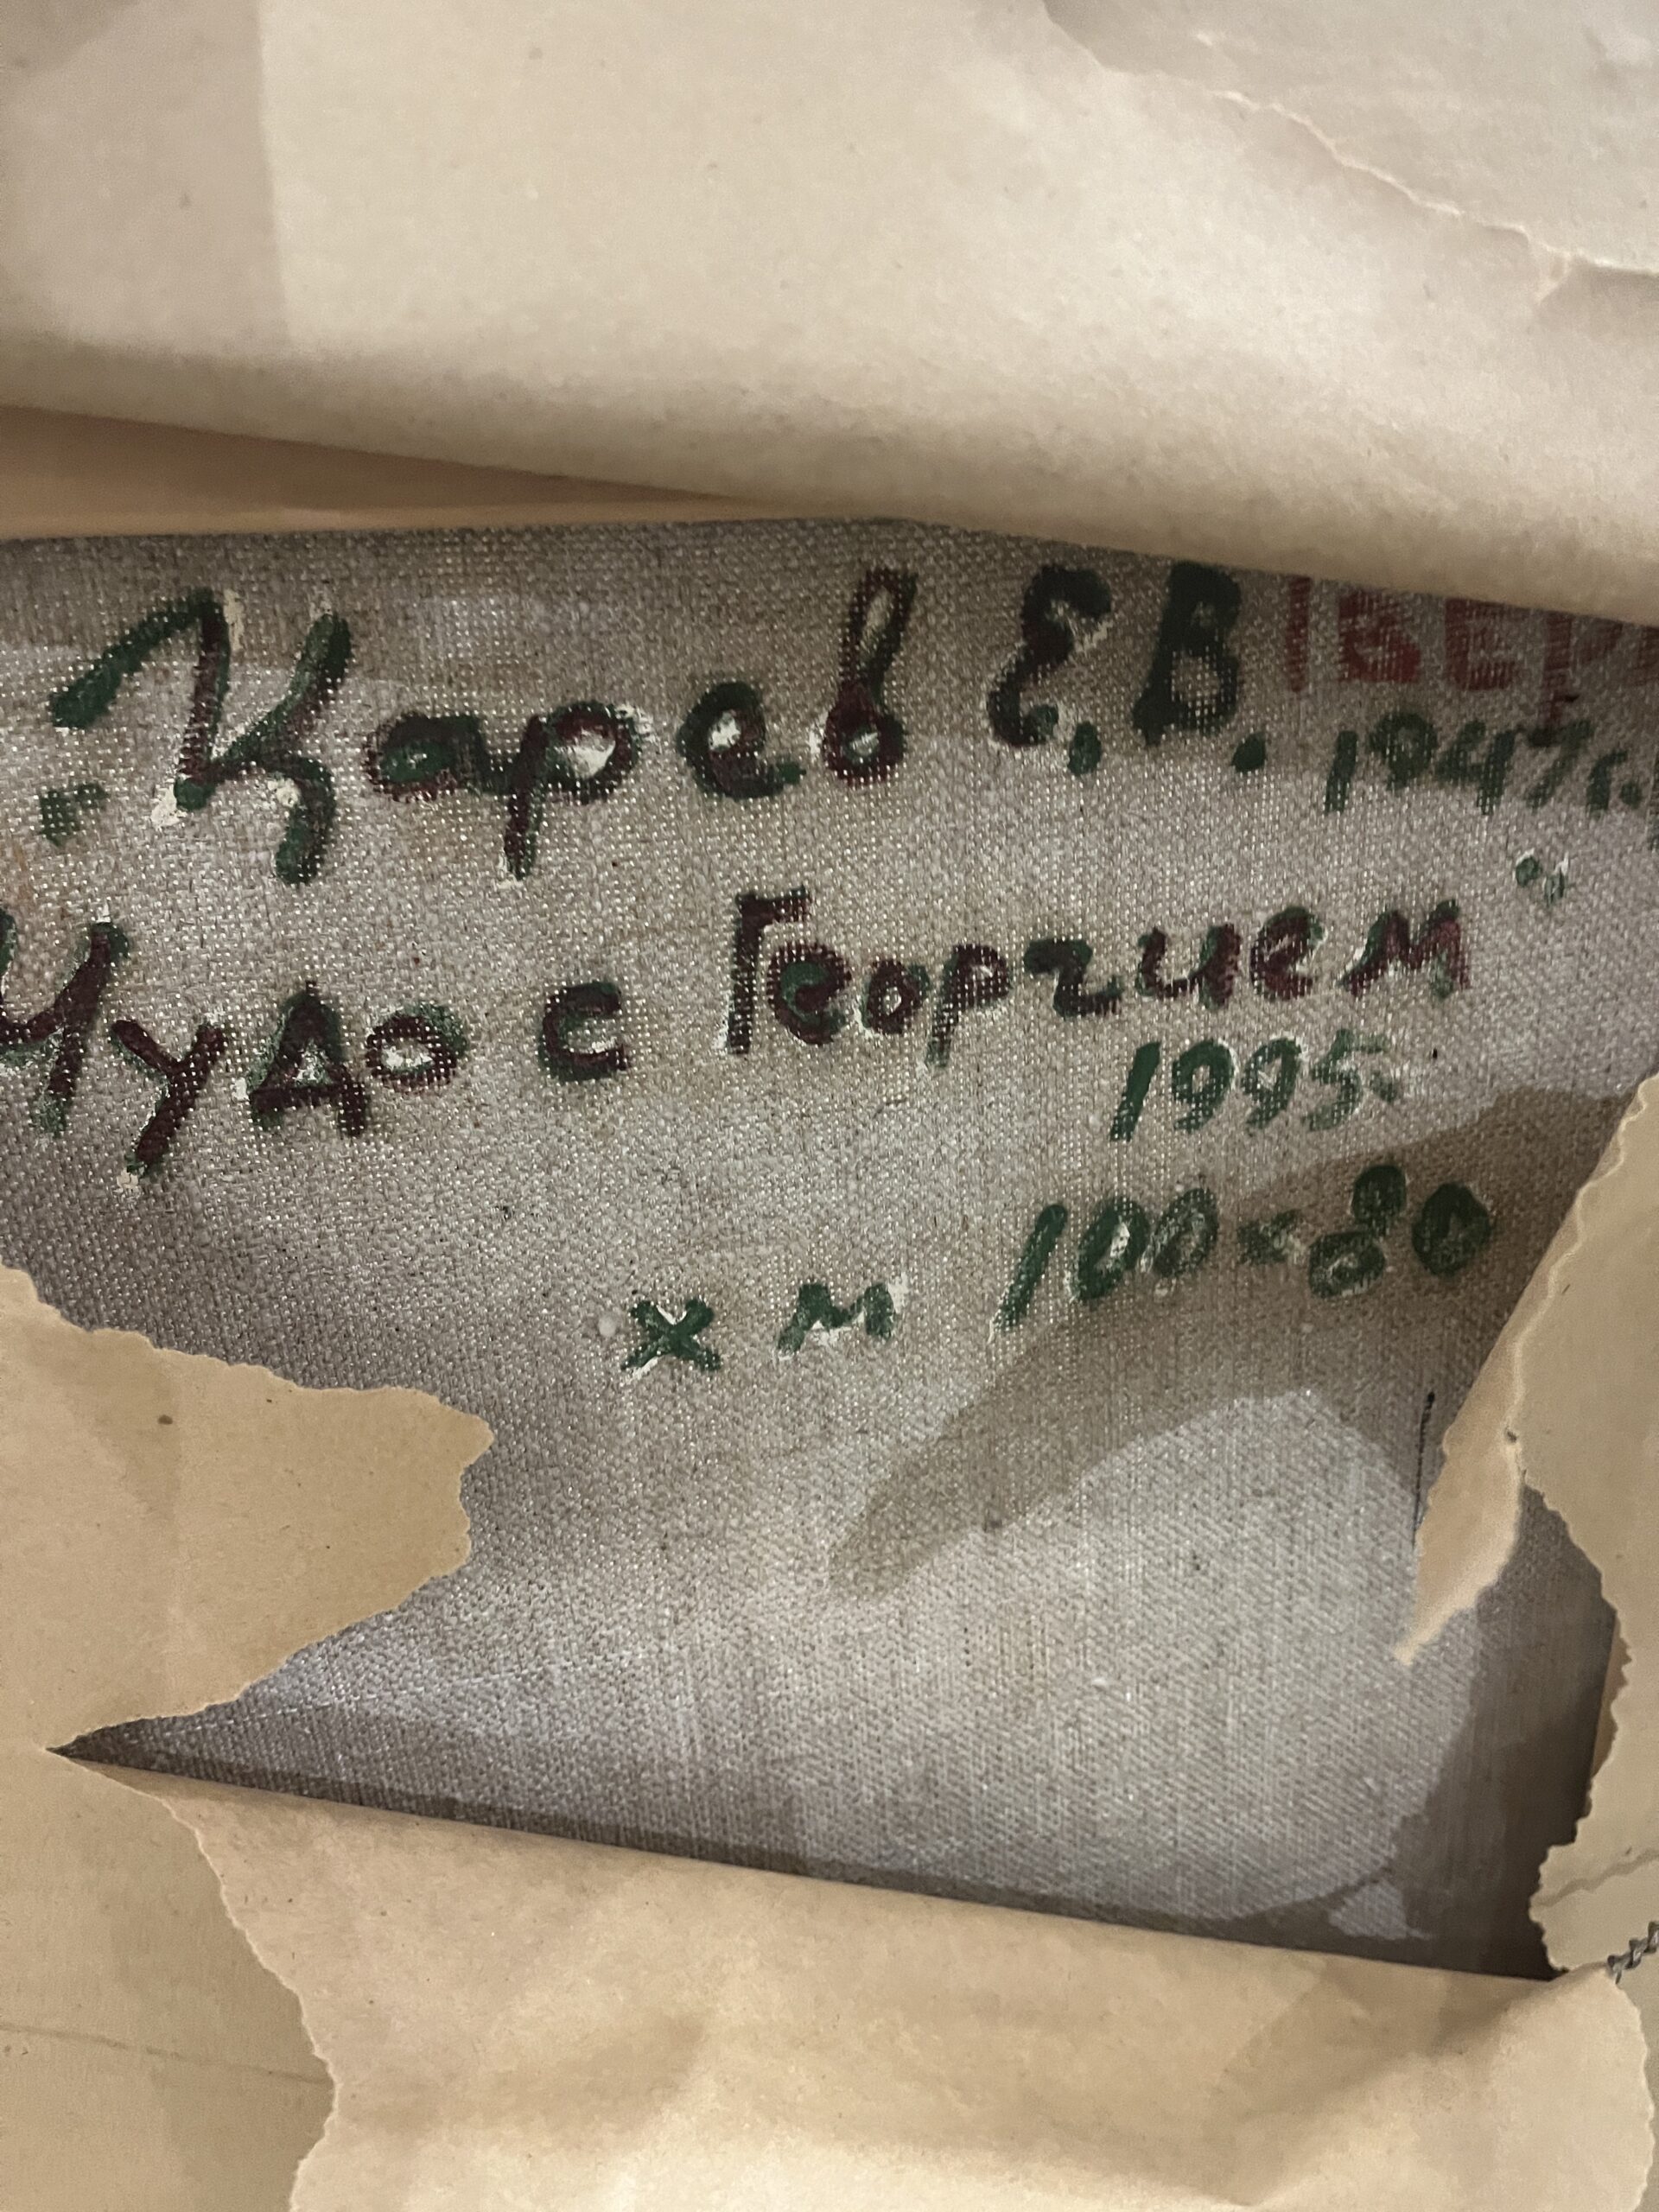 Карев Е.В. ВЕР
1947г.
"Чудо с Георгием"
1995г.
х м 100х80